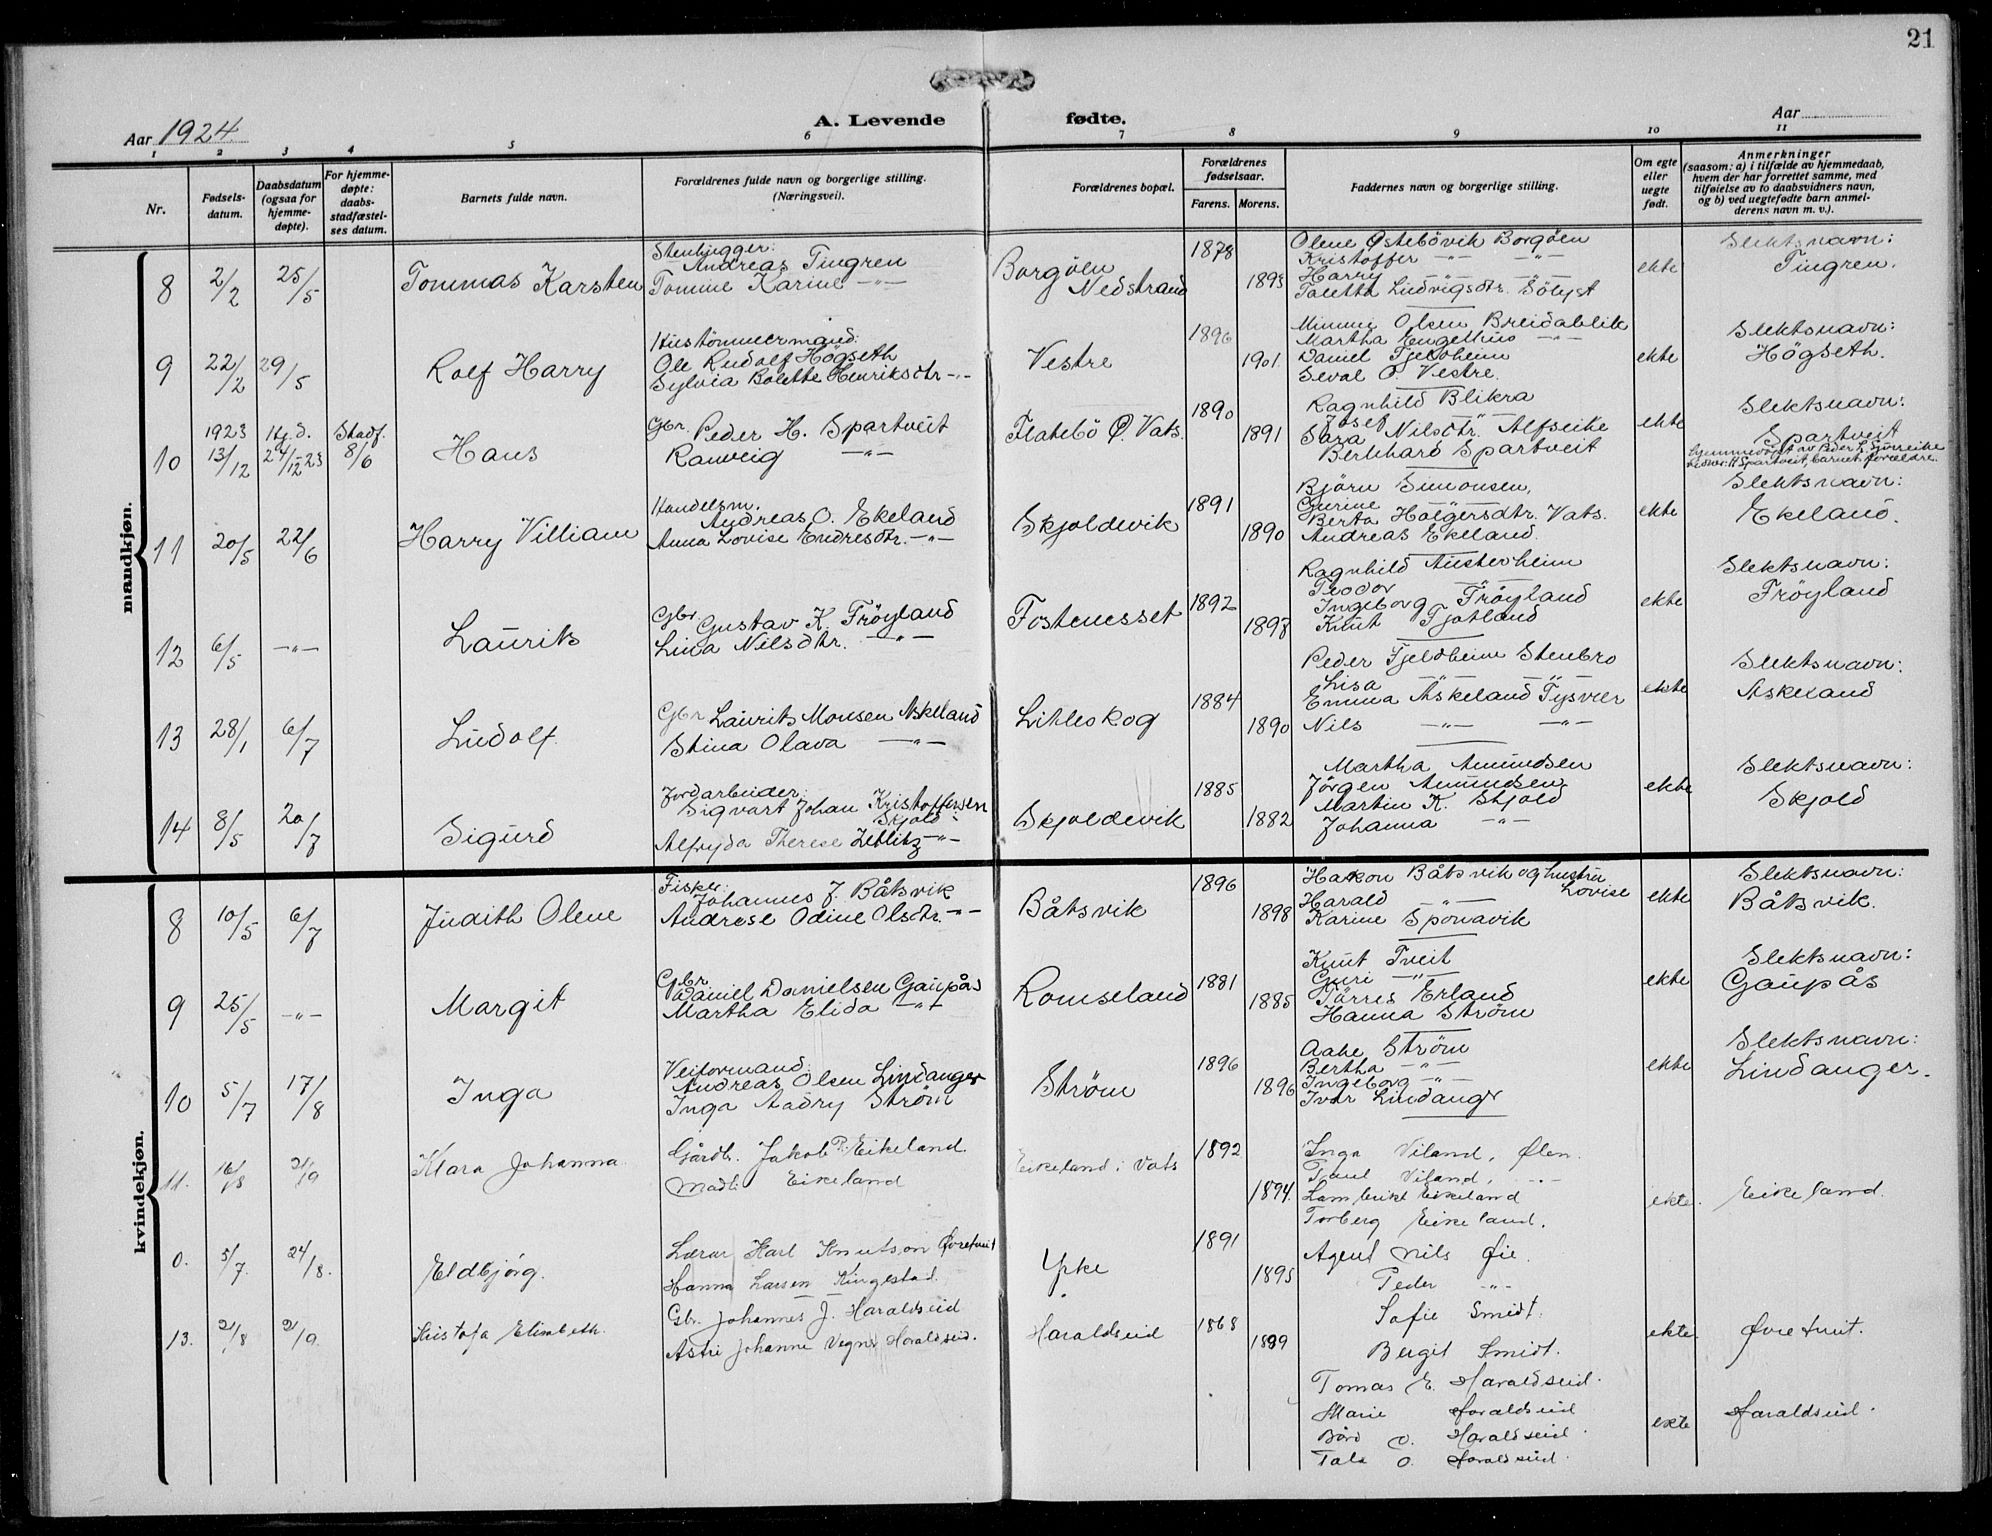 21
A. Levende fødte.
Aar 1924.
Aar
1 2 3 4 5 6 7 8 9 10 11
Nr.
Fødsels-
datum.
Daabsdatum
(ogsaa for
hjemme-
døpte).
For hjemme-
døpte:
daabs-
stadfæstel-
ses datum.
Barnets fulde navn.
Forældrenes fulde navn og borgerlige stilling.
(Næringsvei).
Forældrenes bopæl.
Forældrenes
fødselsaar.
Farens. Morens.
Faddernes navn og borgerlige stilling.
Om egte
eller
uegte
født.
Anmerkninger
(saasom: a) i tilfælde av hjemmedaab,
hvem der har forrettet samme, med
tilføielse av to daabsvidners navn,
og b) ved uegtefødte barn anmel-
derens navn m. v.).
mandkjøn.
8 2/2 25/5 Tommas Karsten
Stenhugger:
Andreas Tingren
Tomine Karine -"-
Borgöen
Nedstrand
1878 1893
Olene Østebövik Borgöen
Kristoffer -"- -"-
Harry -"- -"-
Taletta Ludvigsdtr. Sölyst
ekte
Slektsnavn:
Tingren.
9 22/2 29/5 Rolf Harry
Hustömmermand:
Ole Rudolf Högseth
Sylvia Bolette Henriksdtr -"-
Vestre
1896 1901
Mimmi Olsen Breidablik
Martha Engelhus -"-
Daniel Fjeldheim
Seval O. Vestre.
ekte
Slektsnavn:
Högseth.
10 1923 13/12 Hj.d. 24/12-23 Stadf. 8/6 Hans
Gbr. Peder H. Spartveit
Ranveig -"-
Flatebö Ø. Vats.
1890 1891
Ragnhild Blikra
Josef -"-
Sara Nilsdtr. Alfseike
Bernhard Spartveit
ekte
Slektsnavn:
Spartveit
Hjemmedöpt av Peder L.
Spartveit, barnets forældre.
11 20/5 22/6 Harry Villiam
Handelsm.
Andreas O. Ekeland
Anna Lovise Endresdtr. -"-
Skjoldevik
1891 1890
Björn Simonsen,
Gurine -"-
Berta Holgersdtr. Vats.
Andreas Ekeland.
ekte
Slektsnavn:
Ekeland.
12 6/5 -"- Laurits
Gbr. Gustav K. Fröyland
Lina Nilsdtr. -"-
Fostenesset
1892 1897
Ragnhild Austerheim
Teodor -"-
Ingeborg Fröyland
Knut Tjotland
ekte
Slektsnavn:
Fröyland
13 28/1 6/7 Ludolf.
Gbr Laurits Monsen Askeland
Stina Olava -"-
Litleskog
1884 1890
Peder Fjeldheim Stenbro
Lisa -"- -"-
Emma Askeland Tysvær
Nils -"- -"-
ekte
Slektsnavn:
Askeland
14 8/5 20/7 Sigurd
Jordarbeider:
Sigvart Johan Kristoffersen
Skjold:
Alfryda Therese Zetlitz -"-
Skjoldevik
1885 1882
Martha Amundsen
Jörgen Amundsen
Martin K. Skjold
Johanna -"-
ekte
Slektsnavn:
Skjold
kvindekjøn.
8 10/5 6/7 Judith Olene
Fisker:
Johannes J. Båtsvik
Andrese Odine Olsdtr -"-
Båtsvik
1896 1898
Hakon Båtsvik og hustru
Lovise
Harald -"-
Karine Sponavik
ekte
Slektsnavn:
Båtsvik.
9 25/5 -"- Margit
Gbr
Daniel Danielsen Gaupås
Martha Elida -"-
Romseland
1881 1885
Knut Tveit
Guri -"-
Törres Erland
Hanna Ström
ekte
Slektsnavn:
Gaupås
10 5/7 17/8 Inga
Veiformand:
Andreas Olsen Lindanger
Inga Aadry Ström
Ström
1896 1896
Aahe Ström
Bertha -"-
Ingeborg -"-
Ivar Lindanger
ekte
Slektsnavn:
Lindanger.
11. 16/8 21/9 Klara Johanna
Gårdb. Jakob P. Eikeland
Madli Eikeland
Eikeland i Vats
1892 1894.
Inga Viland, Ølen.
Paul Viland, -"-
Lambrikt Eikeland
Torberg Eikeland.
ekte.
Eikeland.
0. 5/7. 24/8. Eldbjörg.
Lærar Karl Knutson Øvretveit
Hanna Larsen Ringestad.
Ypke
1891 1895
Agent Nils Øie
Peder -"-
Sofie Smidt.
Bergit Smidt.
ekte
Øvretveit.
13. 21/8 21/9. Kristofa Elisabeth.
Gbr. Johannes J. Haraldseid
Astri Johanne Vegner Haraldseid.
Haraldseid
1868 1889
Tomas E. Haraldseid.
Marie Haraldseid
Bård O. Haraldseid.
Tala O. Haraldseid.
ekte
Haraldseid.